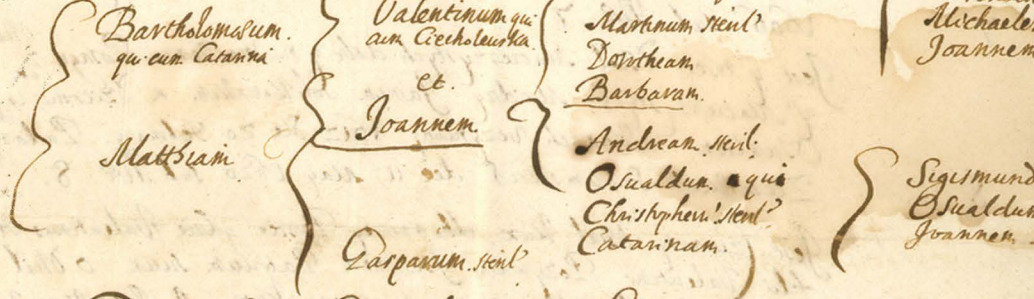 Bartholomæum.
qui cum Catarina
Matthiam
Valentinum qui
cum Ciecholewska
et.
Joannem.
Gasparum. steril
Martinum steril
Dorotheam
Barbaram.
Andream. steril.
Osualdum. qui
Christophorum steril
Catarinam.
Michaele
Joannem
Sigismund
Osualdum
Joannem